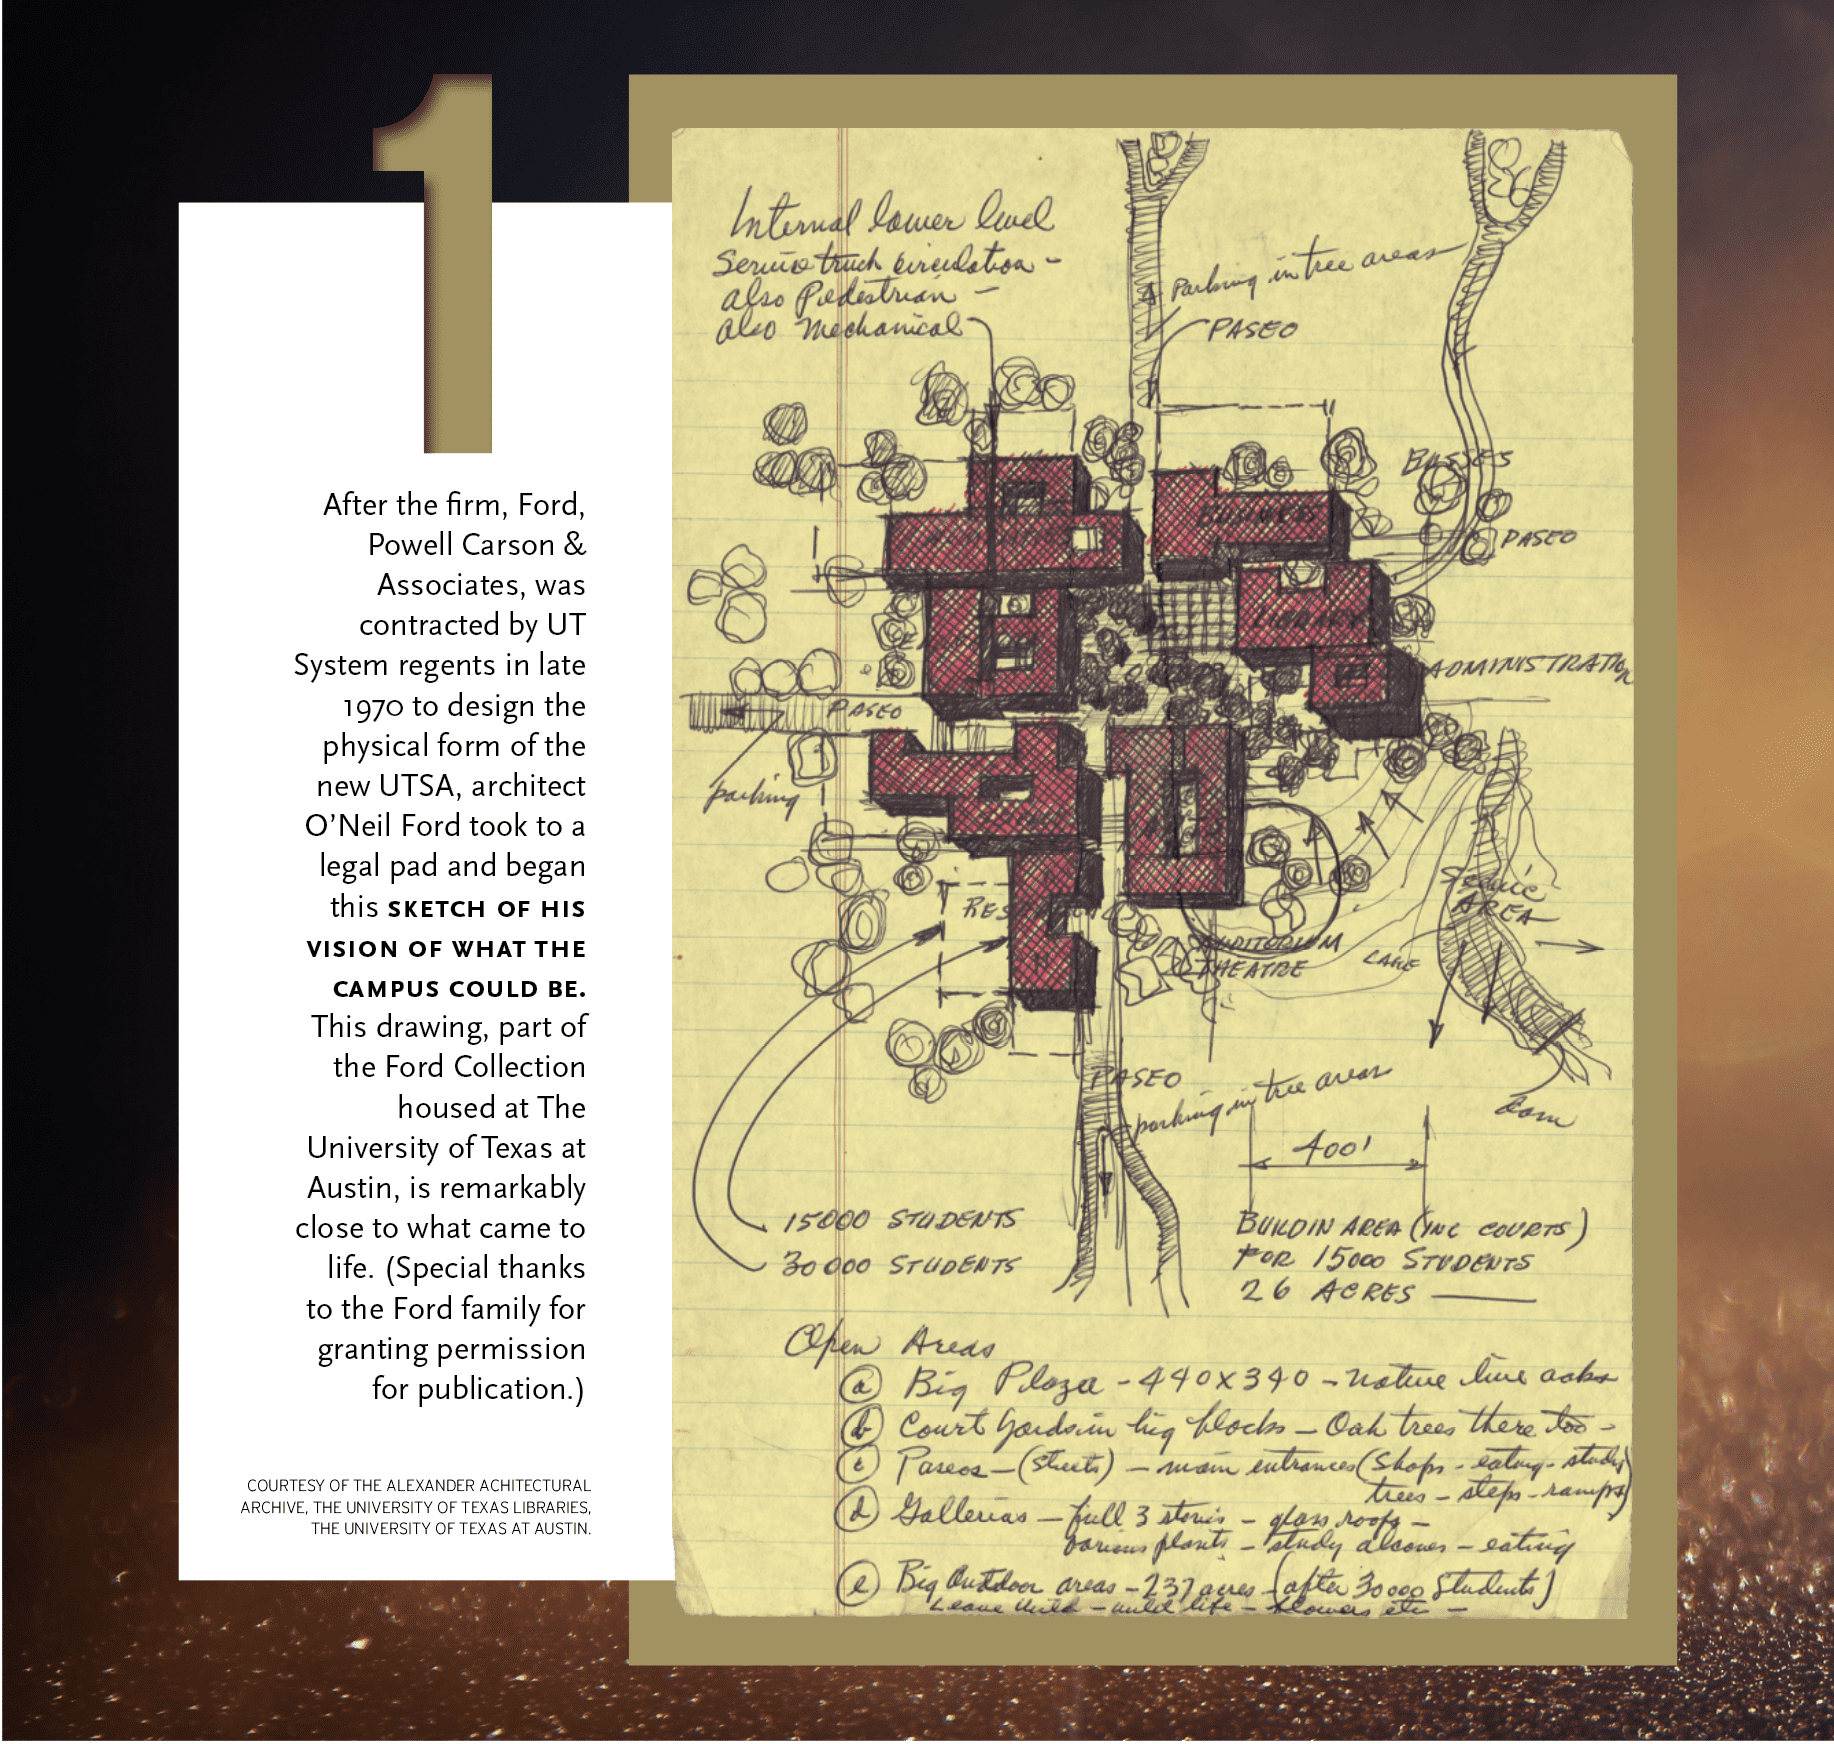 1
After the firm, Ford,
Powell Carson &
Associates, was
contracted by UT
System regents in late
1970 to design the
physical form of the
new UTSA, architect
O'Neil Ford took to a
legal pad and began
this SKETCH OF HIS
VISION OF WHAT THE
CAMPUS COULD BE.
This drawing, part of
the Ford Collection
housed at The
University of Texas at
Austin, is remarkably
close to what came to
life. (Special thanks
to the Ford family for
granting permission
for publication.)
COURTESY OF THE ALEXANDER ACHITECTURAL
ARCHIVE, THE UNIVERSITY OF TEXAS LIBRARIES,
THE UNIVERSITY OF TEXAS AT AUSTIN.
Internal lower level
Service truck circulation –
also Pedestrian –
also Mechanical
Parking in tree areas
PASEO
BUSSES
PASEO
BUSINESS
LIBRARY
ADMINISTRATION
PASEO
parking
SERVIC
AREA
AUDITORIUM
THEATRE
LAKE
PASEO
parking in tree areas
Dam
400'
15000 STUDENTS
30000 STUDENTS
BUILDIN AREA (INC COURTS)
FOR 15000 STUDENTS
26 ACRES
Open Areas
a Big Plaza - 440x340 - native live oaks
b Court Yards in big blocks – Oak trees there too –
c Paseos – (streets) – main entrances (Shops - eating - study
trees – steps - ramps)
d Gallerias – full 3 stories – glass roofs –
various plants – study alcoves – eating
e Big Outdoor areas – 237 acres – (after 30000 Students)
Leave Wild – wild life – flowers etc –